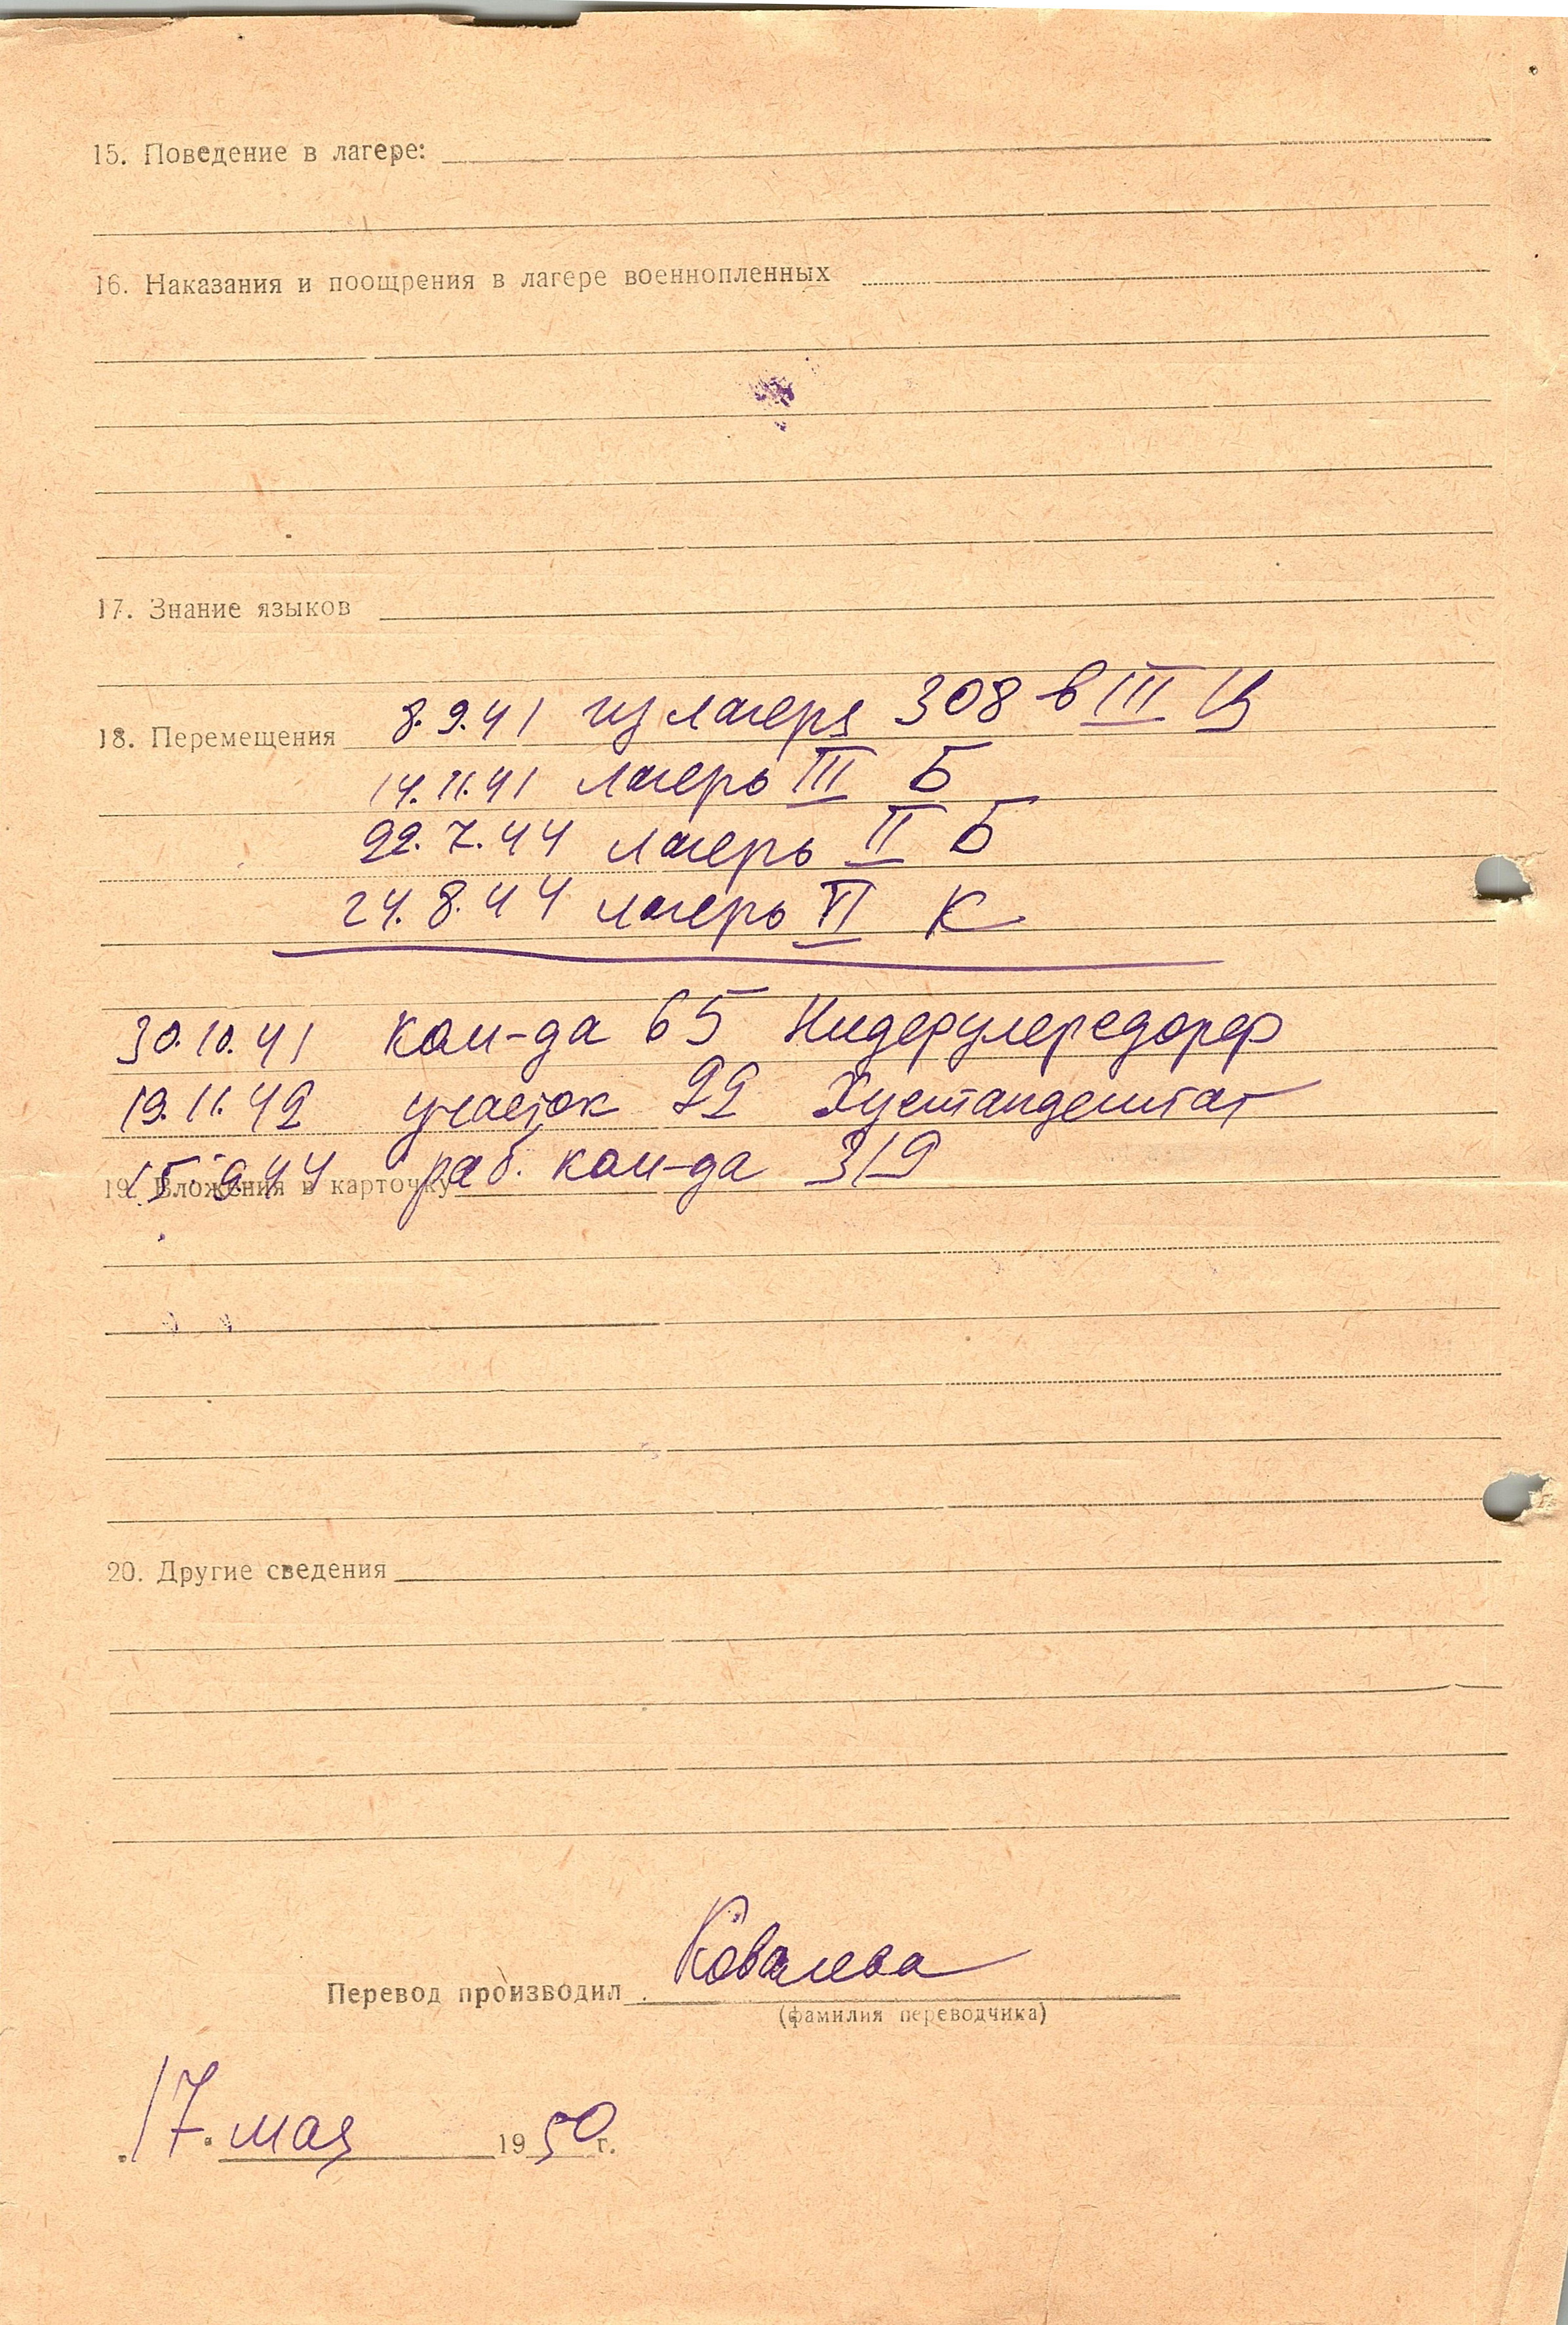 15. Поведение в лагере:
16. Наказания и поощрения в лагере военнопленных
17. Знание языков
18. Перемещения 8.9.41 из лагеря 308 в III Ц
14.11.41 лагерь III Б
22.7.44 лагерь II Б
24.8.44 лагерь VI К
30.10.41 ком-да 65
19.11.42 участок 22
15.9.44 раб. ком-да 319
19. Вложения в карточку
20. Другие сведения
Перевод производил Ковалева
(фамилия переводчика)
17. мая 1950 г.